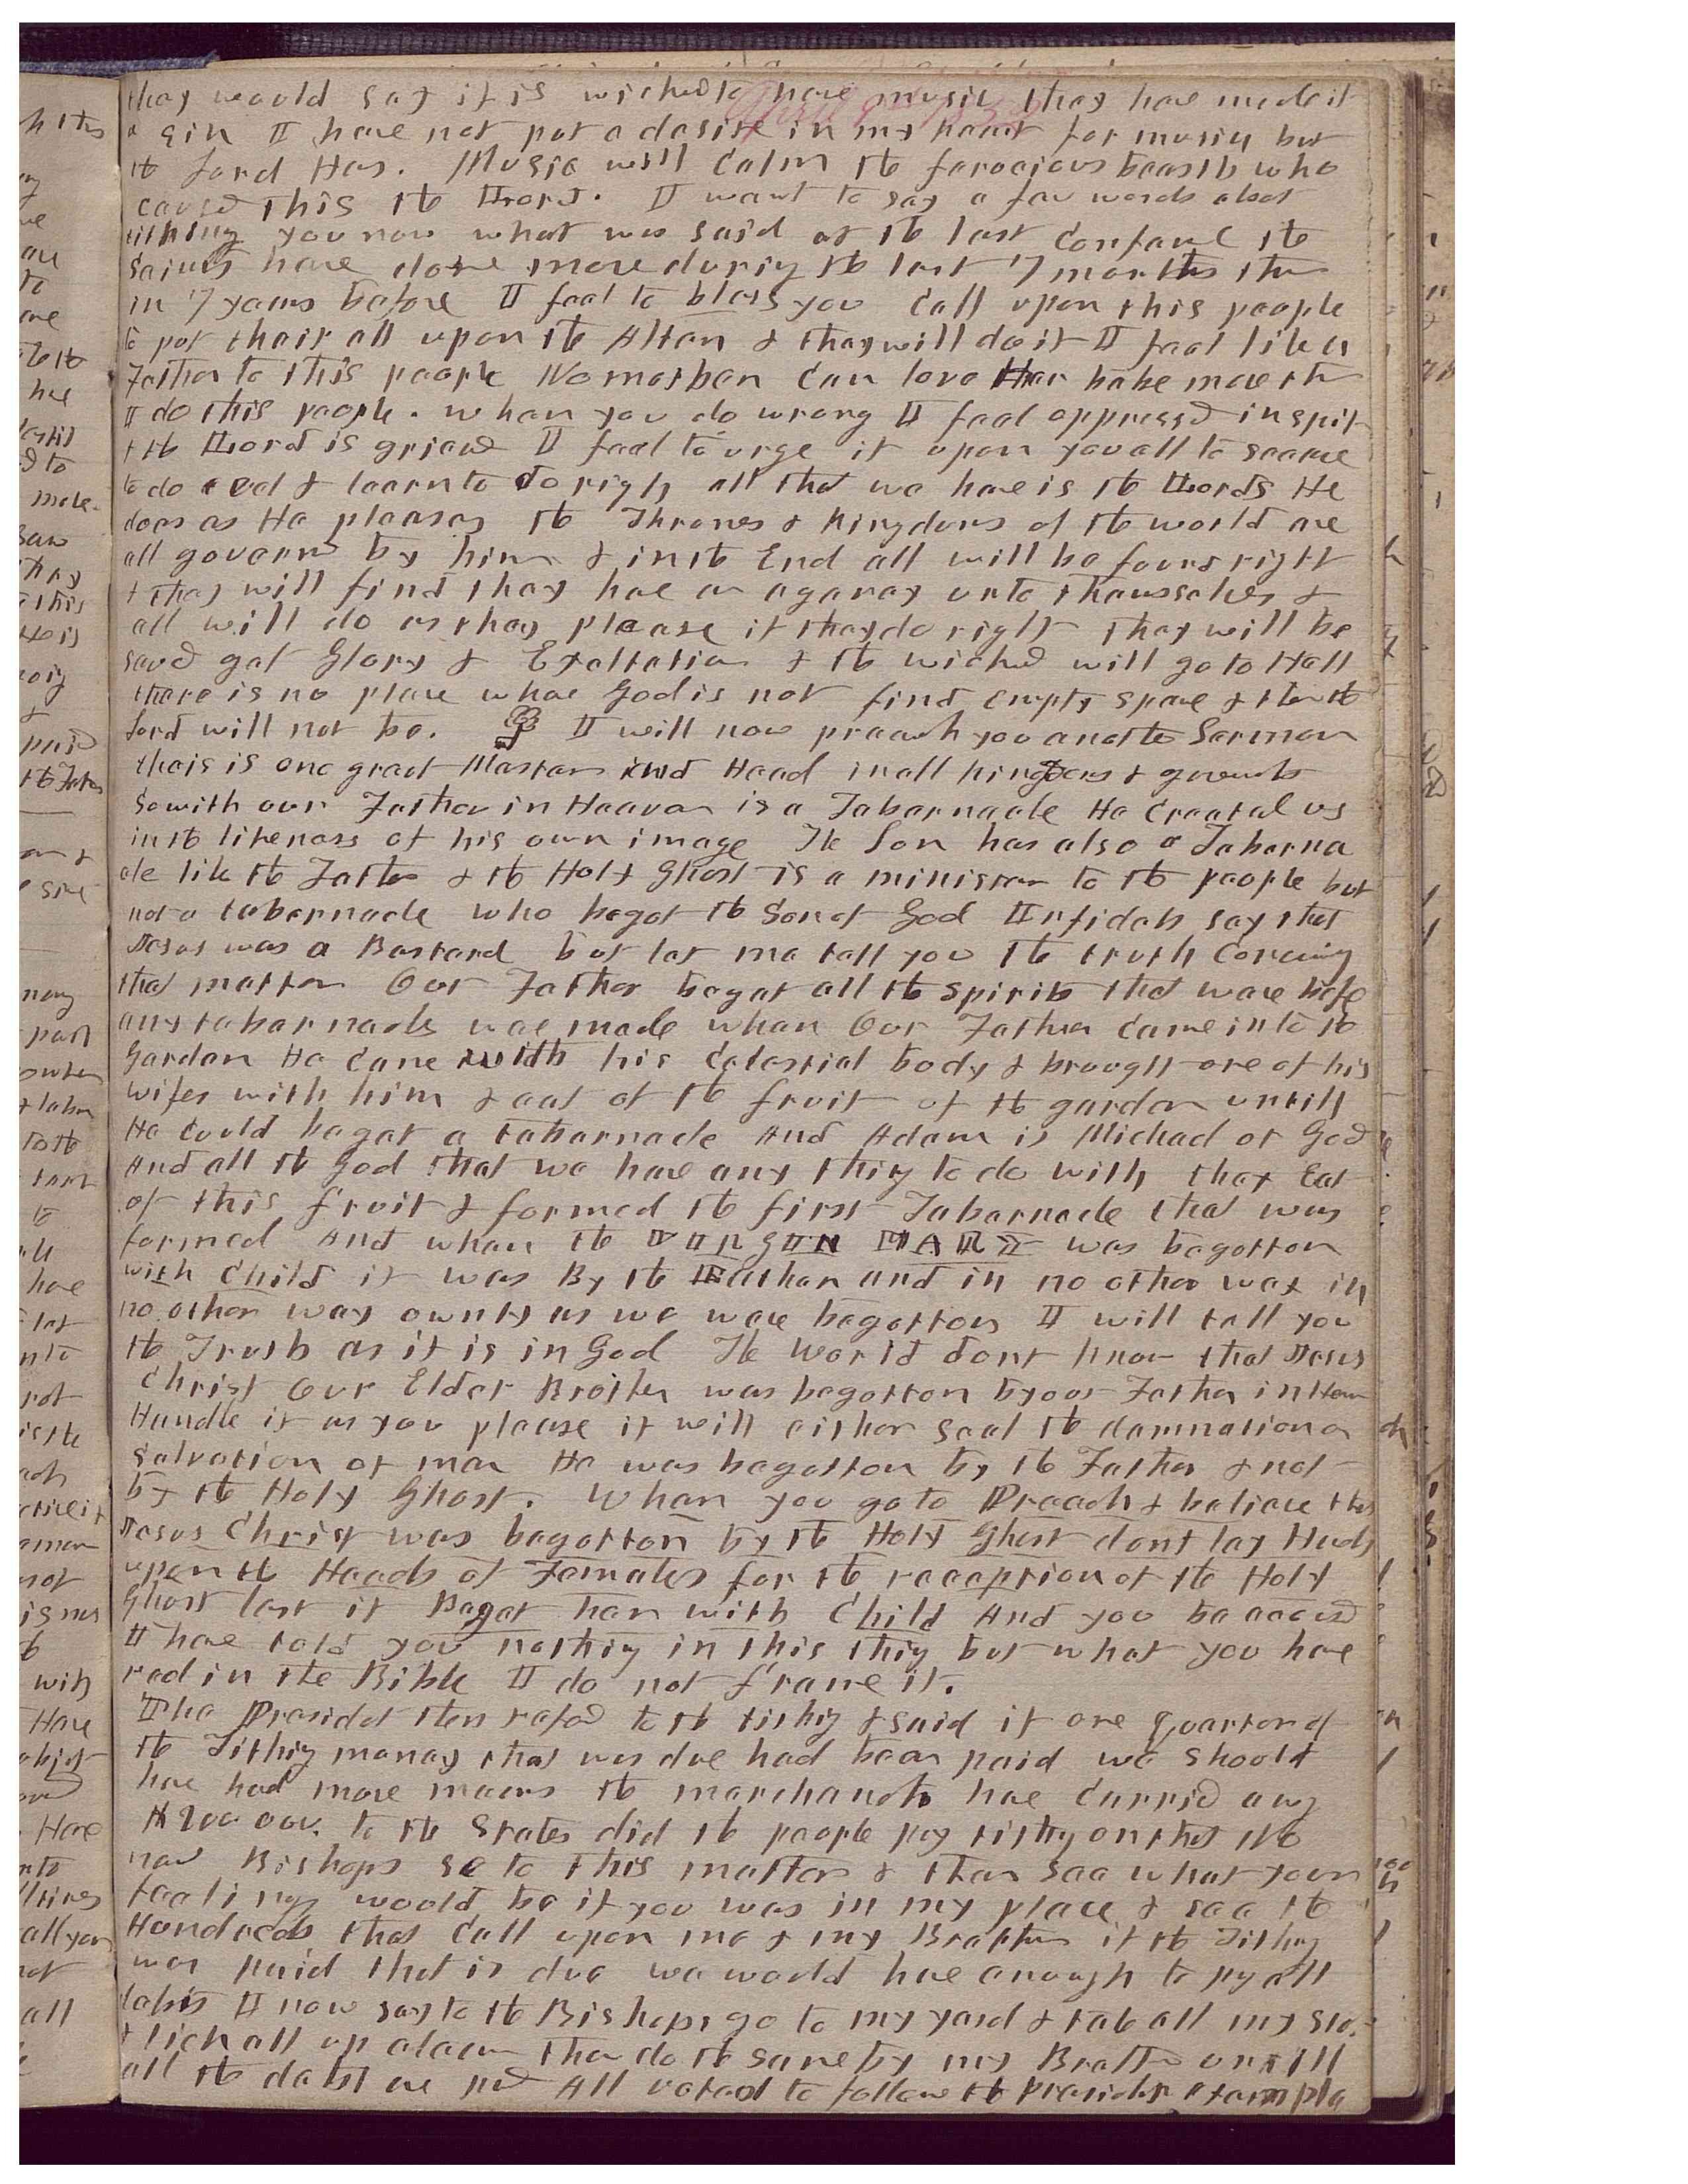 they would say it is wicked to have music they have made it
a sin I have not put a desire in my heart for music but
the Lord Has. Music will Calm the ferocious beasts who
caused this the Lord. I want to say a few words about
tithing you now what was said at the last Conference the
saints have done more during the last 7 months then
in 7 years before I feel to bless you Call upon this people
to put their all upon the Altar & they will do it I feel like a
Father to this people No mother Can love Her babe more then
I do this people. when you do wrong I feel oppressd in spirit
& the Lord is grieved I feel to urge it upon you all to seace
to do evil & learn to do right all that we have is the Lords He
does as He pleases the Thrones & Kingdoms of the world are
all governd by him & in the End all will be found right
& they will find they have an agency unto themsselves &
all will do as they please if they do right they will be
saved get Glory & Exaltation & the wicked will go to Hell
there is no place whare God is not find empty space & then the
Lord will not be. I will now preach you another Sermon
their is one great Master and Head in all kingdoms & goverments
So with our Father in Heaven is a Tabernacle He Created us
in the likeness of his own image The Son has also a Taberna
cle like the Father & the Holy Ghost is a minister to the people but
not a tabernacle who begot the Son of God Infidels say that
Jesus was a Bastard but let me tell you the truth Concerning
that matter Our Father begat all the spirits that ware before
any tabernacle was made when Our Father Came into the
Garden He Came with his Celestial body & brought one of his
wifes with him & eat of the fruit of the garden untill
He Could begat a tabernacle And Adam is Michael or God
And all the God that we have any thing to do with they Eat
of this fruit & formed the first Tabernacle that was
formed And when the VIRGIN MARY was begotton
with Child it was By the Father and in no other way in
no other way ownly as we ware begotton I will tell you
the Truth as it is in God The World dont know that Jesus
Christ Our Elder Brother was begotton by our Father in Heaven
Handle it as you please it will either seal the damnation or
salvation of man He was begotton by the Father & not
by the Holy Ghost. When you go to Preach & believe that
Jesus Christ was begotton by the Holy Ghost dont lay Hands
upon the Heads of Females for the reception of the Holy
Ghost lest it Begat her with Child And you be accused
I have told you nothing in this thing but what you have
red in the Bible I do not frame it.
The Presidet then refered to the tithing & said if one quarter of
the Tithing money that was due had been paid we should
have had more means the marchants have Carried away
$200 000. to the States did the people pay tithing on that No
now Bishops se to this matter & then see what your
feelings would be if you was in my place & see the
Hundreds that Call upon me & my Brethren if the Tithing
was paid that is due we would have enough to pay all
debts I now say to the Bishops go to my yard & take all my
& lich all up clean then do the same by my Brethren untill
all the debts are paid All voted to follow the Presidets example